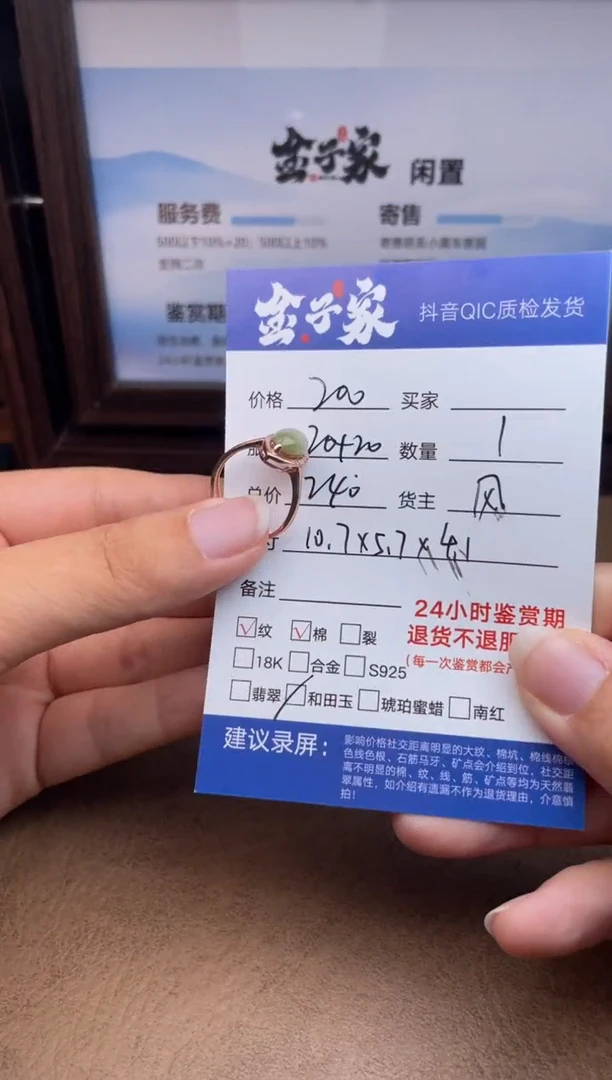 金子家 闲置
服务费
寄售
鉴赏期
金子家 抖音QIC质检发货
价格 200 买家
20+20 数量 1
总价 240 货主 风
寸 10.7×5.7×4.1
备注
24小时鉴赏期
☑纹 ☑棉 □裂
退货不退服
(每一次鉴赏都会产
□18K □合金 □S925
□翡翠 □和田玉 □琥珀蜜蜡 □南红
建议录屏：
影响价格社交距离明显的大纹、棉坑、棉线棉
色线色根、石筋马牙、矿点会介绍到位，社交距
离不明显的棉、纹、线、筋、矿点等均为天然翡
翠属性，如介绍有遗漏不作为退货理由，介意慎
拍！